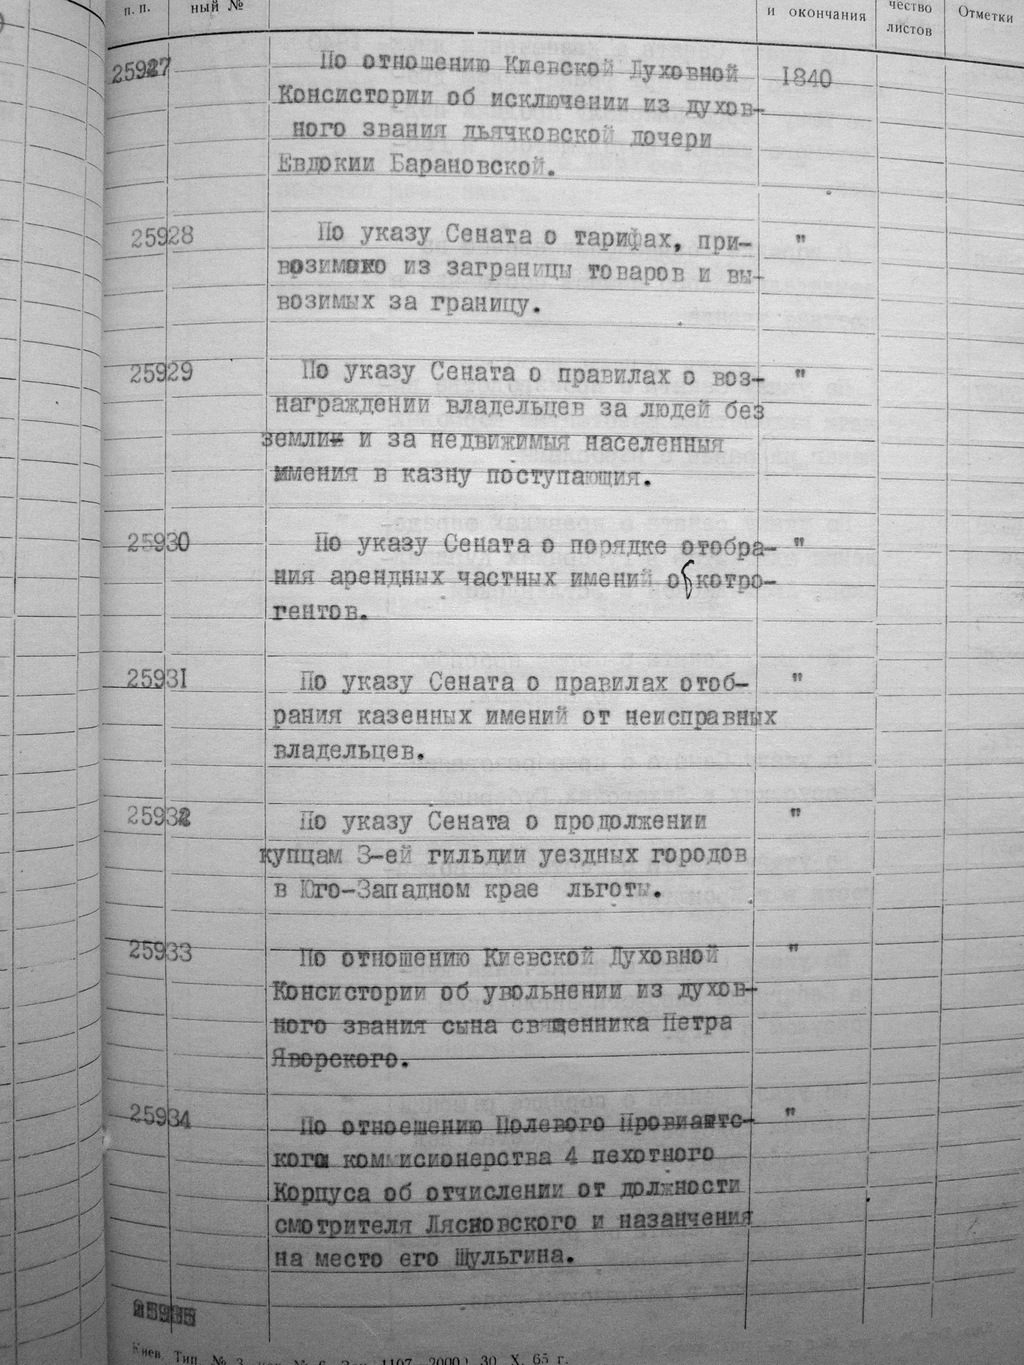 п. п.
ный №
и окончания
чество
листов
Отметки
25927 По отношению Киевской Духовной 1840
Консистории об исключении из духов-
ного звания дьячковской дочери
Евдокии Барановской.
25928 По указу Сената о тарифах, при- "
возимо из заграницы товаров и вы-
возимых за границу.
25929 По указу Сената о правилах о воз- "
награждении владельцев за людей без
земли и за недвижимыя населенныя
имения в казну поступающия.
25930 По указу Сената о порядке отобра- "
ния арендных частных имений о котро-
гентов.
25931 По указу Сената о правилах отоб- "
рания казенных имений от неисправных
владельцев.
25932 По указу Сената о продолжении "
купцам 3-ей гильдии уездных городов
в Юго-Западном крае льготы.
25933 По отношению Киевской Духовной "
Консистории об увольнении из духов-
ного звания сына священника Петра
Яворского.
25934 По отноешению Полевого Провиантс- "
кого коммисионерства 4 пехотного
Корпуса об отчислении от должности
смотрителя Лясковского и назанчения
на место его Шульгина.
25935
Киев. Тип. № 3, № 6. Зак. 1107—2000. 30. X. 65 г.